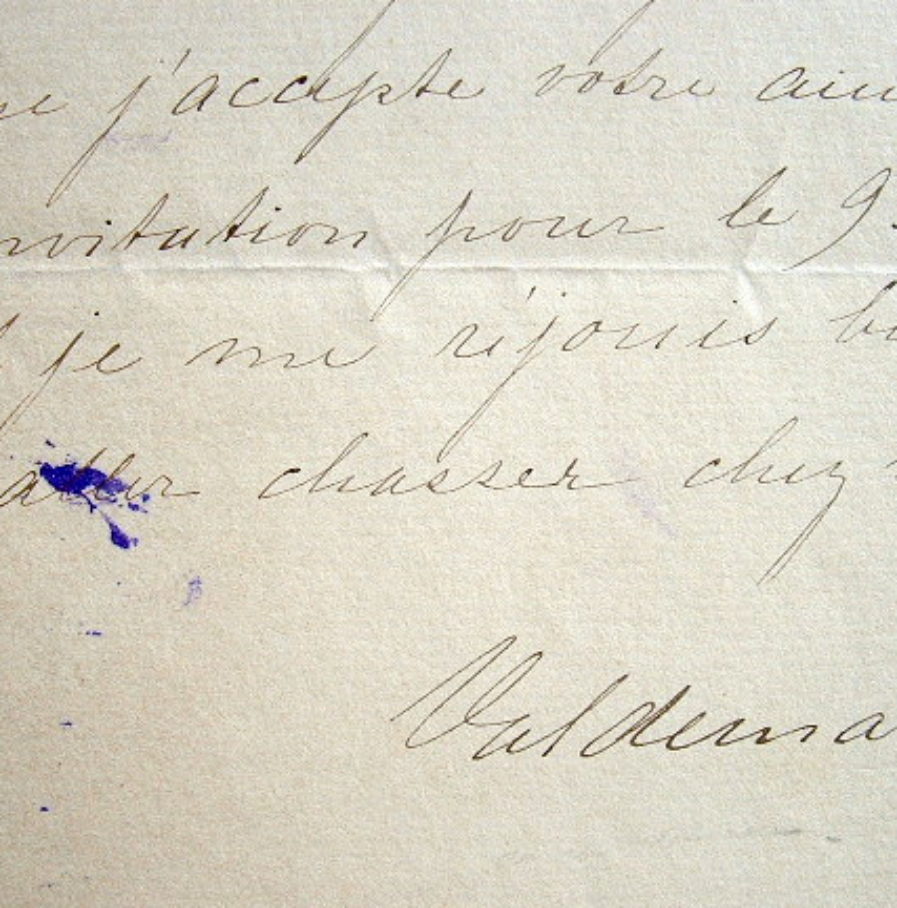 j'accepte votre aim
nvitation pour le 9
je me réjouis bi
aller chasser chez
Valdema